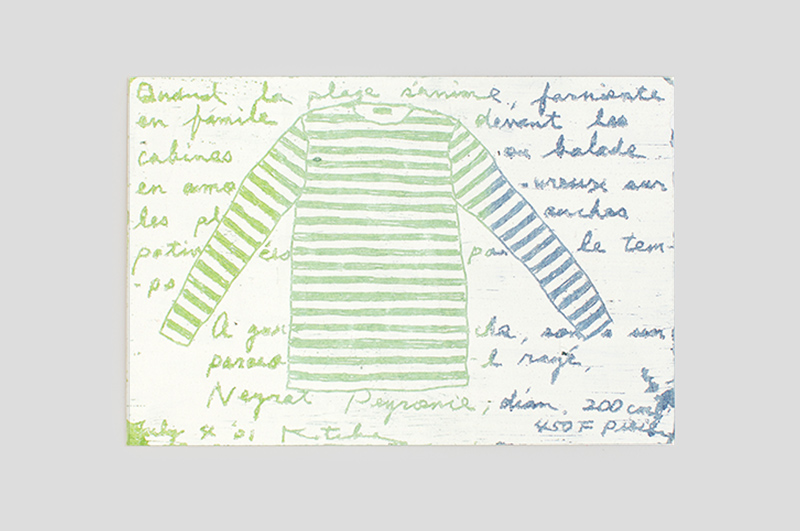 Quand la plage s'anime, farniente
en famile devant les
cabines ou balade
en amo -ureux sur
les pl anches
patin ées pa le tem-
-po
A gau che, son
paraso l rayé,
Negrat Peyronie, diam. 200 cm
July 4 '01
450 F